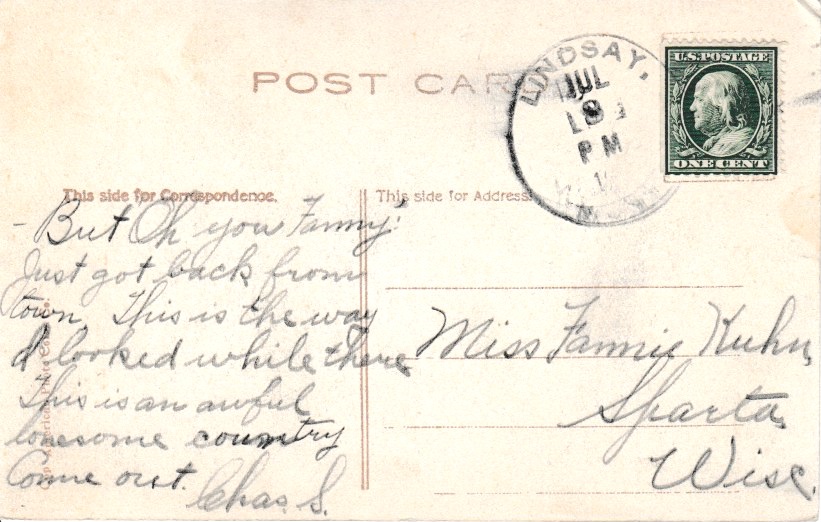 POST CARD
LINDSAY,
JUL
8
PM
U.S. POSTAGE
ONE CENT
This side for Correspondence.
This side for Address.
- But Oh you Fanny!
Just got back from
town. This is the way
I looked while there
This is an awful
lonesome country
Come out.
Chas. S.
Miss Fannie Kuhn,
Sparta,
Wisc.